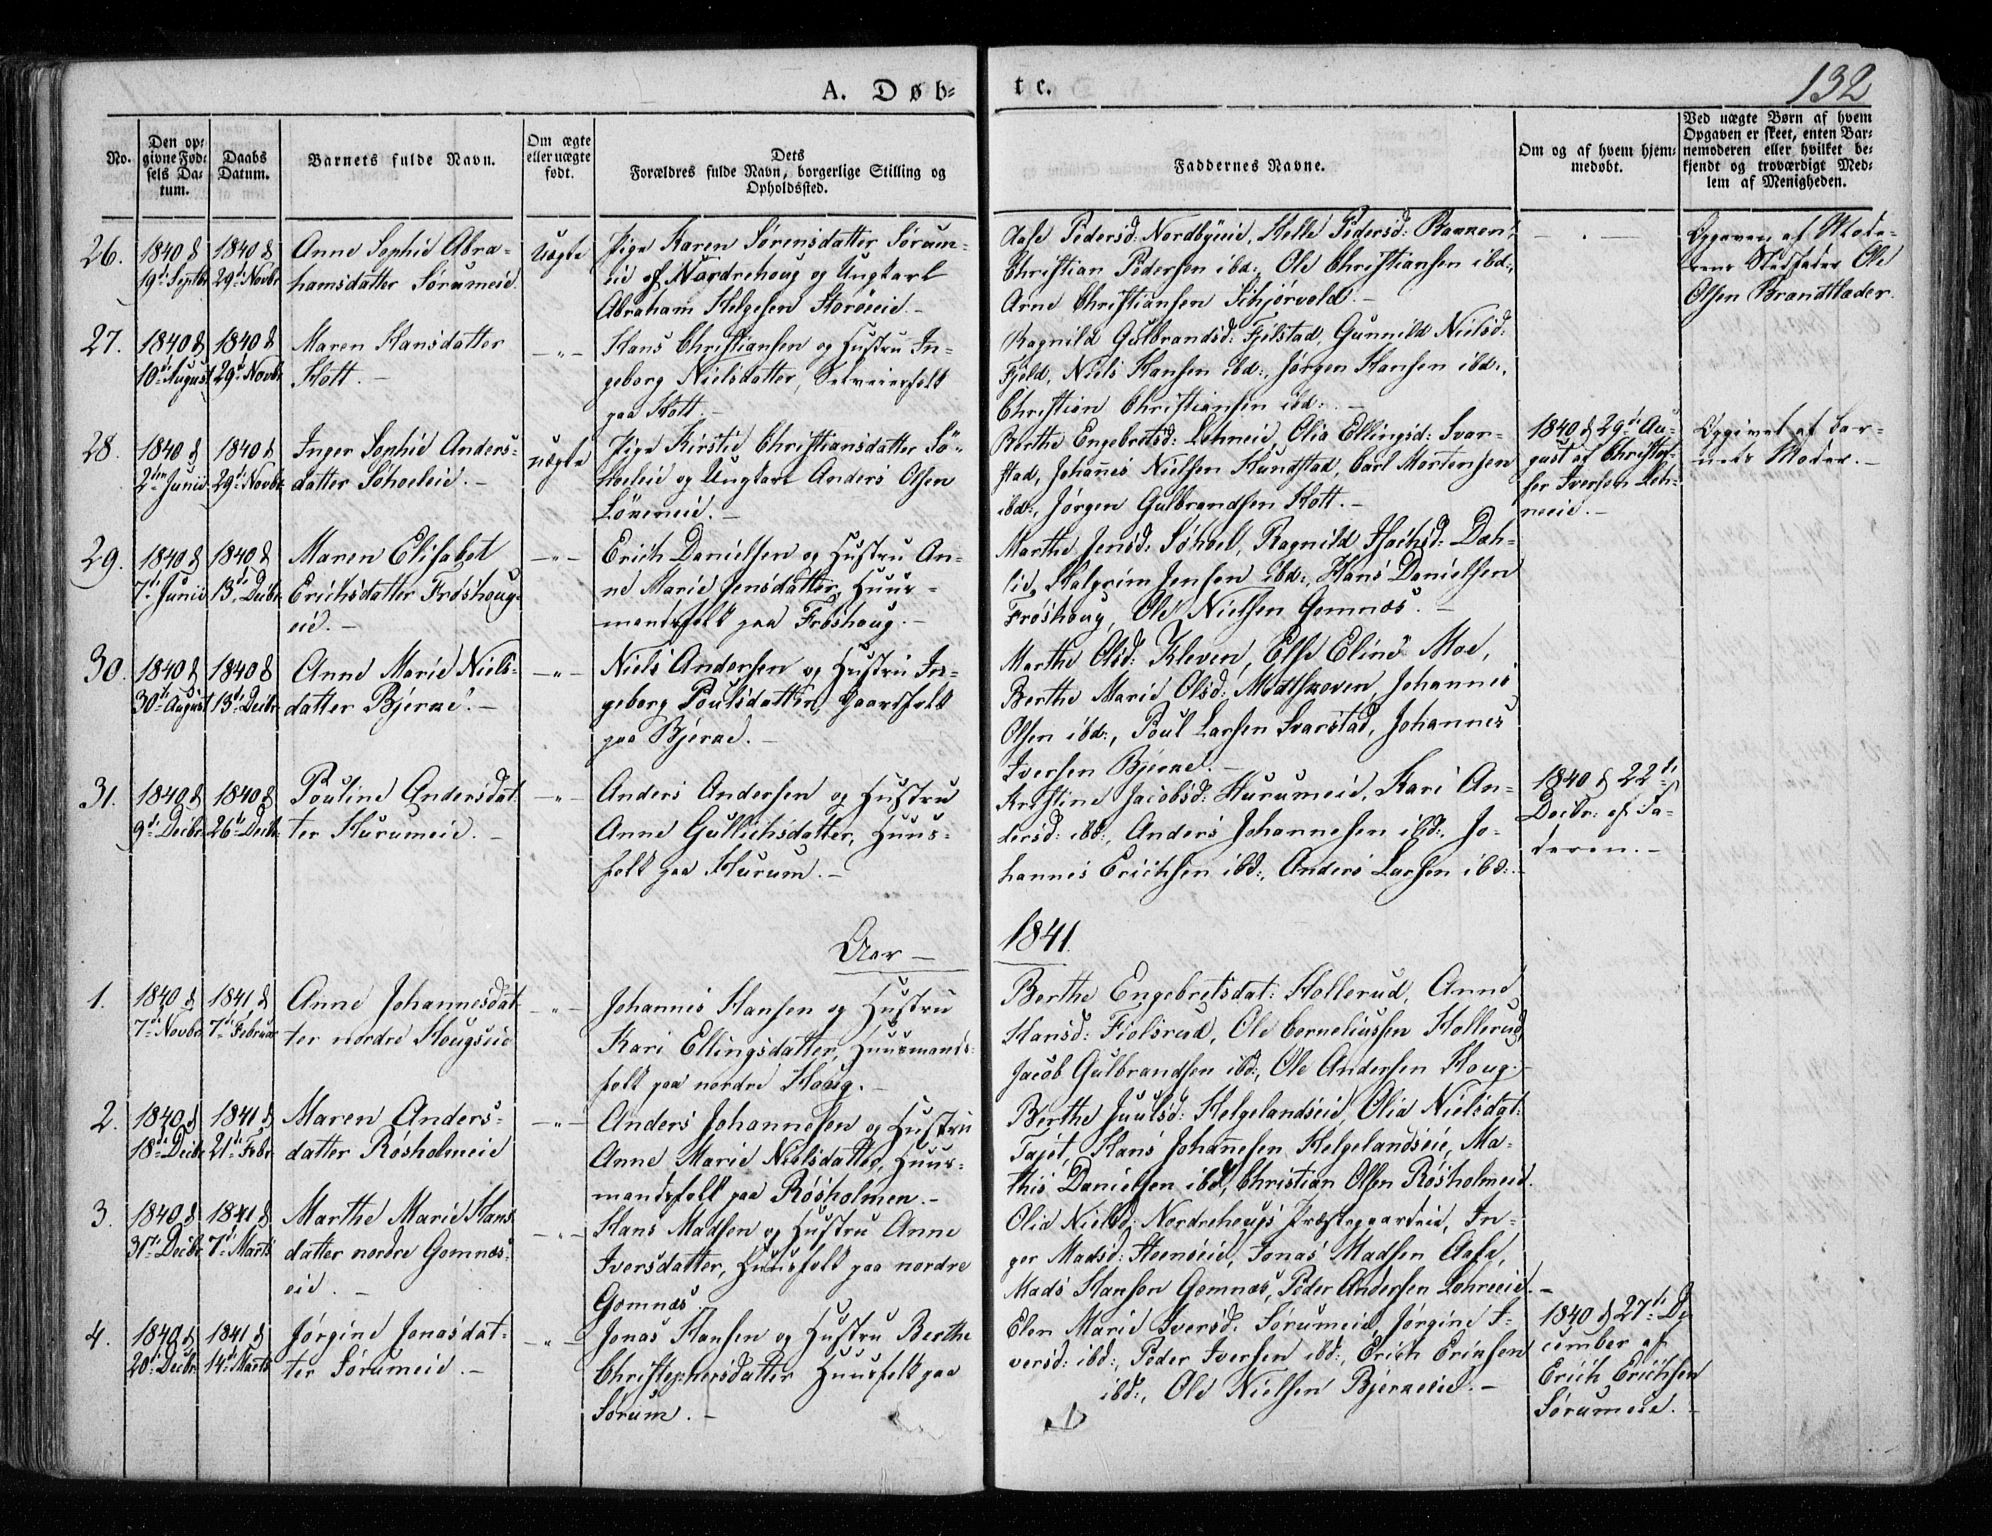 132
A. Døb-
te.
No.
Den op-
givne Fød-
sels Da-
tum.
Daabs
Datum.
Barnets fulde Navn.
Om ægte
eller uægte
født.
Dets
Forældres fulde Navn, borgerlige Stilling og
Opholdssted.
Faddernes Navne.
Om og af hvem hjem-
medøbt.
Ved uægte Børn af hvem
Opgaven er skeet, enten Bar-
nemoderen eller hvilket be-
kjendt og troværdigt Med-
lem af Menigheden.
26.
1840 d
19d. Septbr
1840 d
29d. Novbr
Anne Sophie Abra-
hamsdatter Sørumeie
Uægte
Pige Karen Sørensdatter Sørum-
eie af Nordrehoug og Ungkarl
Abraham Helgesen Storøieie. -
Aase Pedersd: Nordbyeie, Helle Pedersd:
Christian Pedersen ibd:, Ole Christiansen ibd:,
Arne Christiansen Schjørvold. -
Opgaven af Mode-
rens Stedfader Ole
Olsen Brandtlader.
27.
1840 d
10d. August
1840 d
29d. Novbr
Maren Hansdatter
Kott. -
- " -
Hans Christiansen og Hustru In-
geborg Nielsdatter, Selveierfolk
paa Kott. -
Ragnild Gulbrandsd: Fjelstad, Gunnild Nielsd:
Fjeld, Niels Hansen ibd:, Jørgen Hansen ibd:,
Christian Christiansen ibd: -
28.
1840 d
2den Junii
1840 d
29d. Novbr
Inger Sophie Anders-
datter Søhoeleie. -
uægte
Pige Kirstie Christiansdatter Sø-
hoeleie og Ungkarl Anders Olsen
Løkeneie. -
Berthe Engebretsd: Lehneie, Olia Ellingsd: Svar-
stad, Johannes Nielsen Hundstad, Carl Mortensen
ibd:, Jørgen Gulbrandsen Kott. -
1840 d 29d. Au-
gust af Christof-
fer Iversen Leh-
neeie. -
Opgivet af Bar-
nets Moder. -
29.
1840 d
7d. Junii
1840 d
13d. Decbr
Maren Elisabet
Erichsdatter Frøshoug-
eie. -
- " -
Erich Danielsen og Hustru An-
ne Marie Jensdatter, Huus-
mandsfolk paa Frøshoug. -
Marthe Jensd: Søhoel, Ragnild Isachsd: Dæh-
lie, Halgrim Jensen ibd:, Hans Danielsen
Frøshoug, Ole Nielsen Gomnæs. -
30.
1840 d
30d. August
1840 d
13d. Decbr
Anne Marie Niels-
datter Bjerke. -
- " -
Niels Andersen og Hustru In-
geborg Poulsdatter, Gaardfolk
paa Bjerke. -
Marthe Olsd: Kleven, Else Eline Moe,
Berthe Marie Olsd: Modtskoven, Johannes
Olsen ibd:, Poul Larsen Svarstad, Johannes
Iversen Bjerke. -
31.
1840 d
9d. Decbr
1840 d
26d. Decbr
Pouline Andersdat-
ter Hurumeie. -
- " -
Anders Andersen og Hustru
Anne Gullichsdatter, Huus-
folk paa Hurum. -
Kristine Jacobsd: Hurumeie, Kari An-
dersd: ibd:, Anders Johannesen ibd:, Jo-
hannes Erichsen ibd:, Anders Larsen ibd:
1840 d 22d.
Decbr: af Fa-
deren. -
Aar -
1841.
1.
1840 d
7d. Novbr
1841 d
7d. Februar
Anne Johannesdat-
ter nordre Hougseie
- " -
Johannes Hansen og Hustru
Kari Ellingsdatter, Huusmands-
folk paa nordre Houg. -
Berthe Engebretsdat: Hollerud, Anne
Hansd: Fiolsrud, Ole Corneliussen Hollerud,
Jacob Gulbrandsen ibd:, Ole Andersen Houg. -
2.
1840 d
18d. Decbr
1841 d
21d. Febr
Maren Anders-
datter Røsholmeie
- " -
Anders Johannesen og Hustru
Anne Marie Nielsdatter, Huus-
mandsfolk paa Røsholmen. -
Berthe Juulsd: Helgelandseie, Olia Nielsdat:
Fajet, Hans Johannesen Helgelandseie, Ma-
this Danielsen ibd:, Christian Olsen Røsholmeie.
3.
1840 d
31d. Decbr
1841 d
7d. Marts
Marthe Marie Hans-
datter nordre Gomnæs-
eie. -
- " -
Hans Madsen og Hustru Anne
Iversdatter, Huusfolk paa nordre
Gomnæs. -
Olia Nielsd: Nordrehougs Præstegaardeie, In-
ger Madsd: Steenseie, Jonas Madsen Aasa,
Mads Hansen Gomnæs, Peder Andersen Lehneeie. -
4.
1840 d
20d. Decbr
1841 d
14d. Marts
Jørgine Jonasdat-
ter Sørumeie. -
- " -
Jonas Hansen og Hustru Berthe
Christophersdatter Huusfolk paa
Sørum. -
Elen Marie Iversd: Sørumeie, Jørgine I-
versd: ibd:, Peder Iversen ibd:, Erich Eriksen
ibd:, Ole Nielsen Bjerkeeie. -
1840 d 27d. De-
cember af
Erich Erichsen
Sørumeie. -